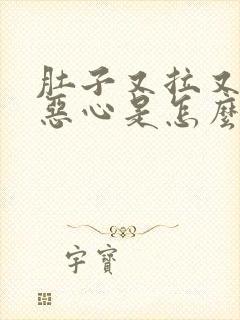 肚子又拉又
惡心是怎麼
字寶